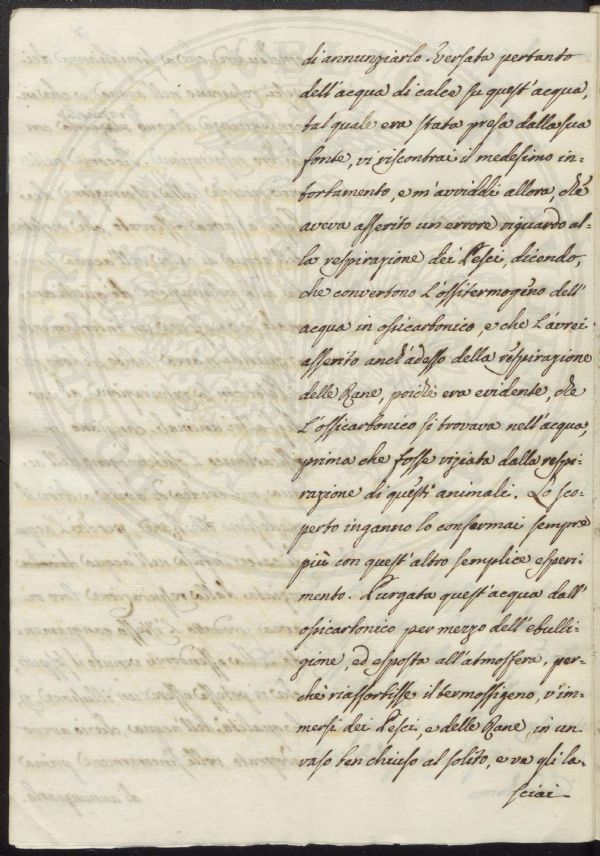 di annunziarlo. Versata pertanto
dell'acqua di calce su quest'acqua,
tal quale era stata presa dalla sua
fonte, vi riscontrai il medesimo in-
torbamento, e m'avviddi allora, che
aveva asserito un errore riguardo al-
la respirazione dei Pesci, dicendo,
che convertono l'ossitermogeno dell'
acqua in ossicarbonico, e che l'avrei
asserito anch'adesso della respirazione
delle Rane, poichè era evidente, che
l'ossicarbonico si trovava nell'acqua,
prima che fosse viziata dalla respi-
razione di questi animali. Lo sco-
perto inganno lo confermai sempre
più con quest'altro semplice esperi-
mento. Purgata quest'acqua dall'
ossicarbonico per mezzo dell'ebulli-
zione, ed esposta all'atmosfera, per-
chè riassortisse il termossigeno, v'im-
mersi dei Pesci, e delle Rane, in un
vaso ben chiuso al solito, e ve gli la-
sciai